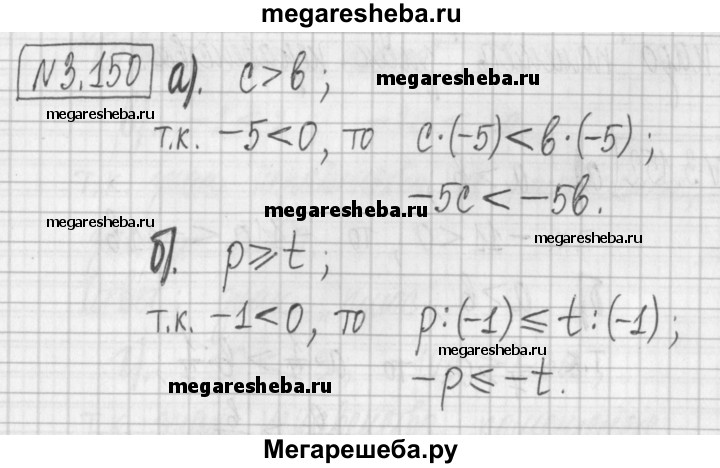 megaresheba.ru
№3.150 а). c>b; megaresheba.ru
megaresheba.ru
т.к. -5<0, то c·(-5)<b·(-5);
megaresheba.ru -5c<-5b.
megaresheba.ru
megaresheba.ru
б). p⩾t;
т.к. -1<0, то p:(-1)⩽t:(-1);
megaresheba.ru
megaresheba.ru -p⩽-t.
Мегарешеба.ру